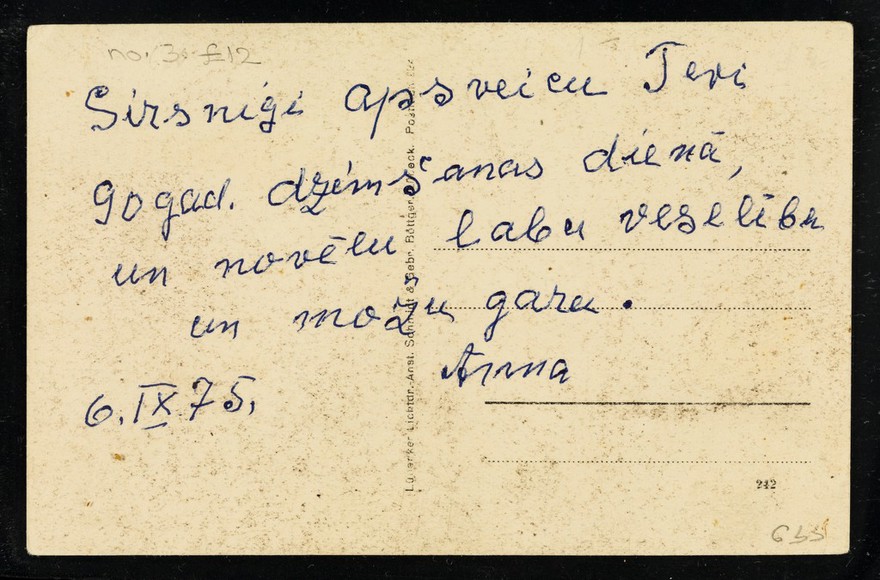 no. 3. £12
Sirsnigi apsveicu Tevi
90 gad. dzimšanas dienā,
un novēlu labu veselību
un možu garu.
Anna
6.IX 75.
Lübecker Lichtdr.-Anst. Schmidt & Gebr. Böttger, Lübeck.
242